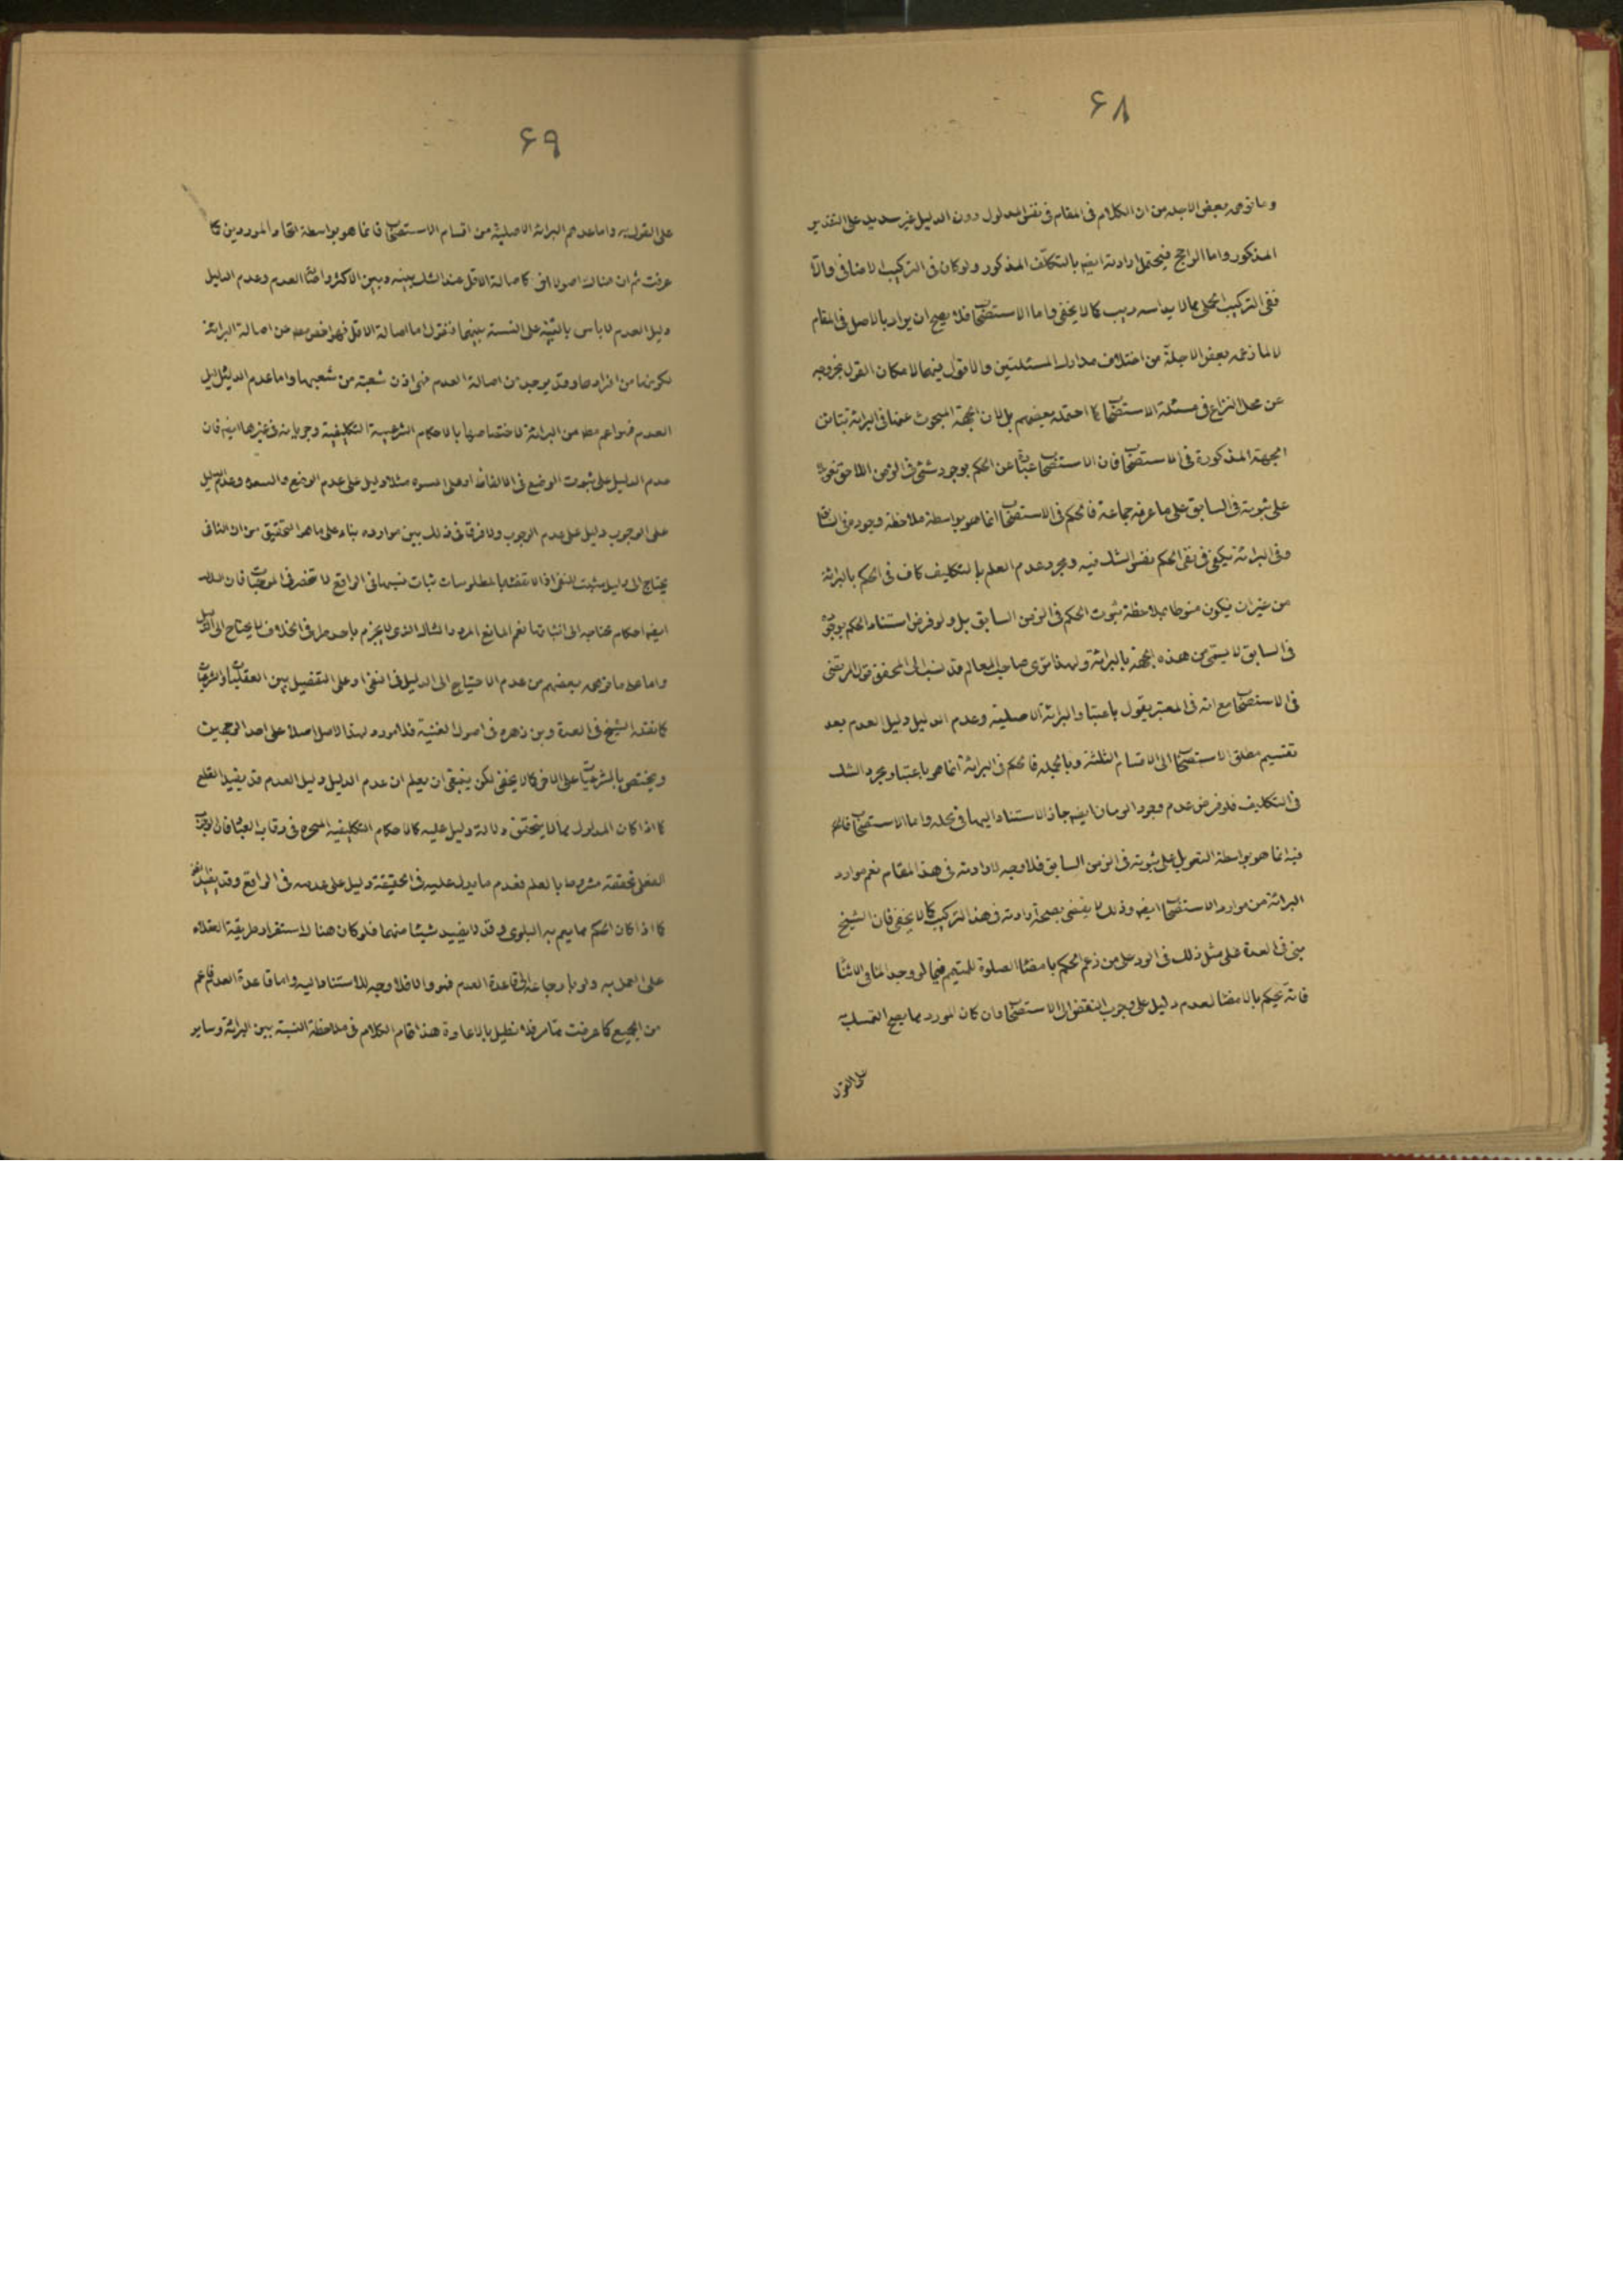 ۶۸
وما توهمه بعض الاجلة من ان الكلام فى المقام فى نفس المدلول دون الدليل غير سديد على التقدير
المذكور واما الراجح فيحتمل ارادته ايضا بالتكلف المذكور ولو كان فى التركيب الاضافى والا
ففى التركيب الحملى مما لا يدانيه ريب كما لا يخفى واما الاستصحاب فلا يصح ان يراد بالاصل فى المقام
لا لما زعمه بعض الاجلة من اختلاف مدارك المسئلتين والاقوال فيهما لامكان القول بخروجه
عن محل النزاع فى مسئلة الاستصحاب كما احتمله بعضهم بل لان الجهة المبحوث عنها فى البرائة تباين
الجهة المذكورة فى الاستصحاب فان الاستصحاب عبارة عن الحكم بوجود شئ فى الزمن اللاحق تعويلا
على ثبوته فى السابق على ما عرفه جماعة فالحكم فى الاستصحاب انما هو بواسطة ملاحظة وجوده فى السابق
وفى البرائة يكفى فى نفى الحكم نفس الشك فيه ومجرد عدم العلم بالتكليف كاف فى الحكم بالبرائة
من غير ان يكون منوطا بملاحظة ثبوت الحكم فى الزمن السابق بل ولو فرض استناد الحكم بوجوده
فى السابق لا يسمى من هذه الجهة بالبرائة ولهذا ترى صاحب المعالم قد نسب الى المحقق قول المرتضى
فى الاستصحاب مع انه فى المعتبر يقول باعتبار البرائة الاصلية وعدم الدليل دليل العدم بعد
تقسيم مطلق الاستصحاب الى الاقسام الثلثة وبالجملة فالحكم فى البرائة انما هو باعتبار مجرد الشك
فى التكليف فلو فرض عدم وجود الزمان ايضا جاز الاستناد اليها فى محله واما الاستصحاب فالحكم
فيه انما هو بواسطة التعويل على ثبوته فى الزمن السابق فلا وجه لارادته فى هذا المقام نعم موارد
البرائة من موارد الاستصحاب ايضا وذلك لا يقضى بصحة ارادته فى هذا التركيب كما لا يخفى فان الشيخ
بنى فى العدة على مثل ذلك فى الرد على من زعم الحكم بامضاء الصلوة للمتيمم فيما لو وجد الماء فى الاثناء
فانه يحكم بالامضاء لعدم دليل على وجوب النقض لا للاستصحاب وان كان المورد مما يصح التمسك به
على القول
۶۹
على القول به واما عدهم البرائة الاصلية من اقسام الاستصحاب فانما هو بواسطة اتحاد الموردين كما
عرفت ثم ان هناك اصولا اخر كاصالة الاقل عند الشك بينه وبين الاكثر واصالة العدم وعدم الدليل
دليل العدم لا باس بالتنبيه على النسبة بينهما فنقول اما اصالة الاقل فهو اخص مطلقا من اصالة البرائة
لكونها من افرادها وقد يوجد من اصالة العدم فهى اذن شعبة من شعبها واما عدم الدليل دليل
العدم فهو اعم مطلقا من البرائة لاختصاصها بالاحكام الشرعية التكليفية وجريانه فى غيرها ايضا فان
عدم الدليل على ثبوت الوضع فى الالفاظ او على النبوة مثلا دليل على عدم الوضع والنبوة وعدم الدليل
على الوجوب دليل على عدم الوجوب ولا فرق فى ذلك بين موارده بناء على ما هو التحقيق من ان النافى
يحتاج الى دليل مثبت للنفى
ايضا احكام محتاجة الى اثباتها نعم المانع المردد الشاك الذى لا يجزم باحد طرفى الخلاف لا يحتاج الى الدليل
واما على ما توهمه بعضهم من عدم الاحتياج الى الدليل فى النفى او على التفصيل بين العقليات والشرعيات
كما نقله الشيخ فى العدة وبن زهره فى اصول الغنية فلا مورد لهذا الاصل اصلا على احد الوجهين
ويختص بالشرعيات على الاخر كما لا يخفى لكن ينبغى ان يعلم ان عدم الدليل دليل العدم قد يفيد القطع
كما اذا كان المدلول مما لا يتحقق دلالة دليل عليه كالاحكام التكليفية المنجزة فى رقاب العباد فان
الفعلى تحققه مشروط بالعلم فعدم ما يدل عليه فى الحقيقة دليل على عدمه فى الواقع وقد يفيد الظن
كما اذا كان الحكم مما يعم به البلوى وقد لا يفيد شيئا منهما فلو كان هنا لاستقرار طريقة العقلاء
على العمل به ولو بارجاعه الى قاعدة العدم فهو والا فلا وجه للاستناد اليه واما قاعدة العدم فاعم
من الجميع كما عرفت مما مر فلا نطيل بالاعادة هذا تمام الكلام فى ملاحظة النسبة بين البرائة وساير